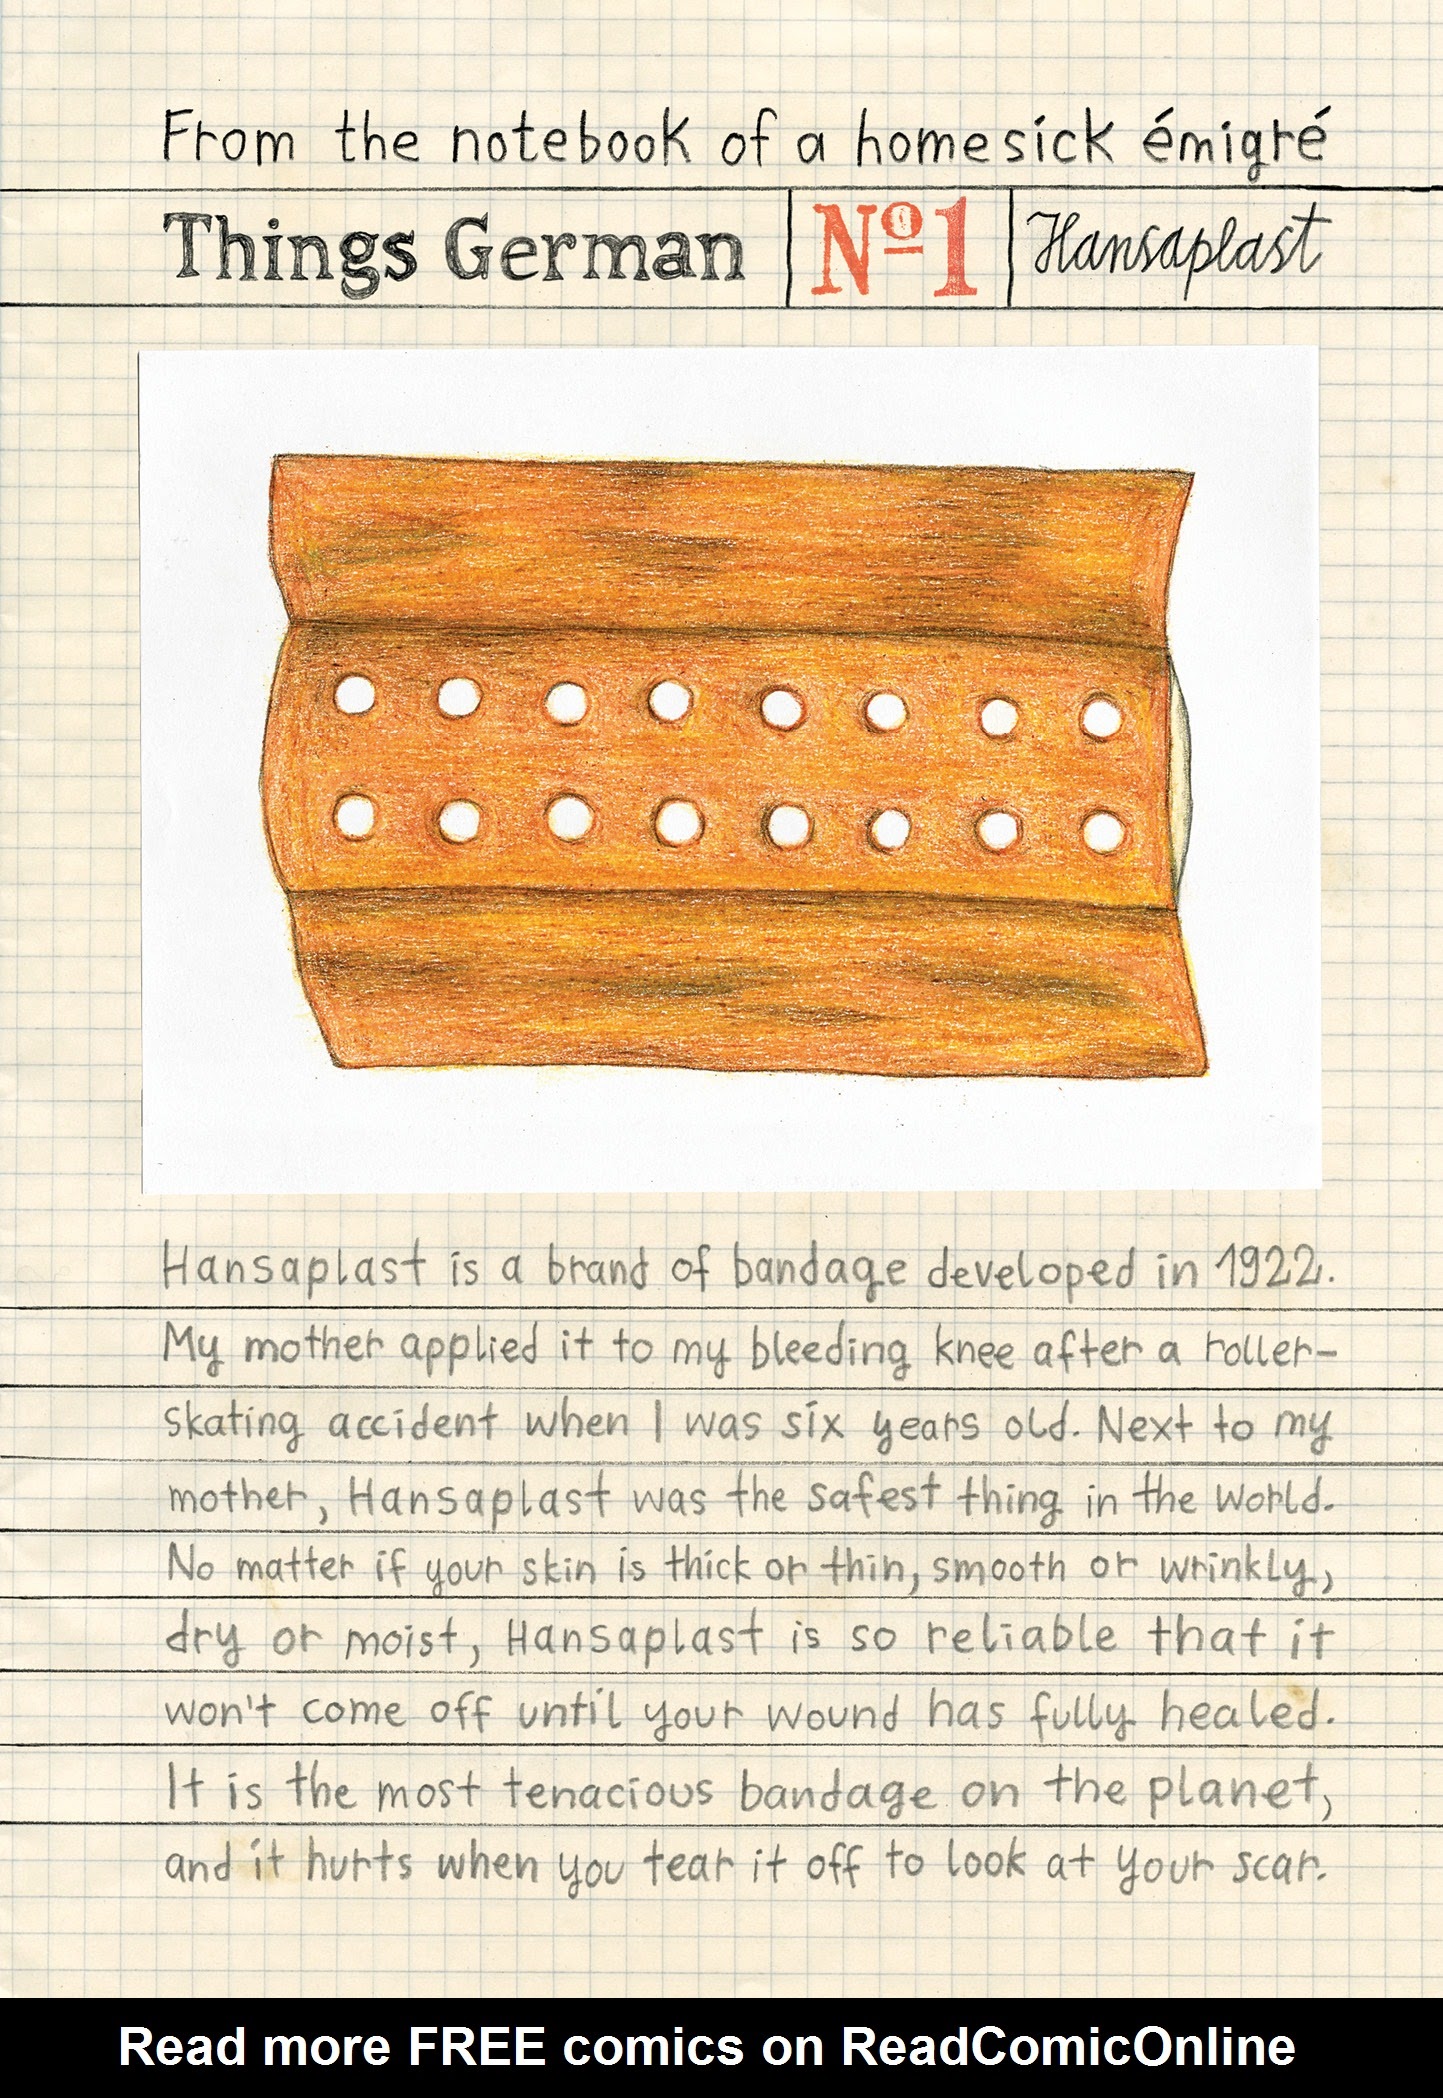 From the notebook of a homesick émigré
Things German Nº1 Hansaplast
Hansaplast is a brand of bandage developed in 1922.
My mother applied it to my bleeding knee after a roller-
skating accident when I was six years old. Next to my
mother, Hansaplast was the safest thing in the world.
No matter if your skin is thick or thin, smooth or wrinkly,
dry or moist, Hansaplast is so reliable that it
won't come off until your wound has fully healed.
It is the most tenacious bandage on the planet,
and it hurts when you tear it off to look at your scar.
Read more FREE comics on ReadComicOnline